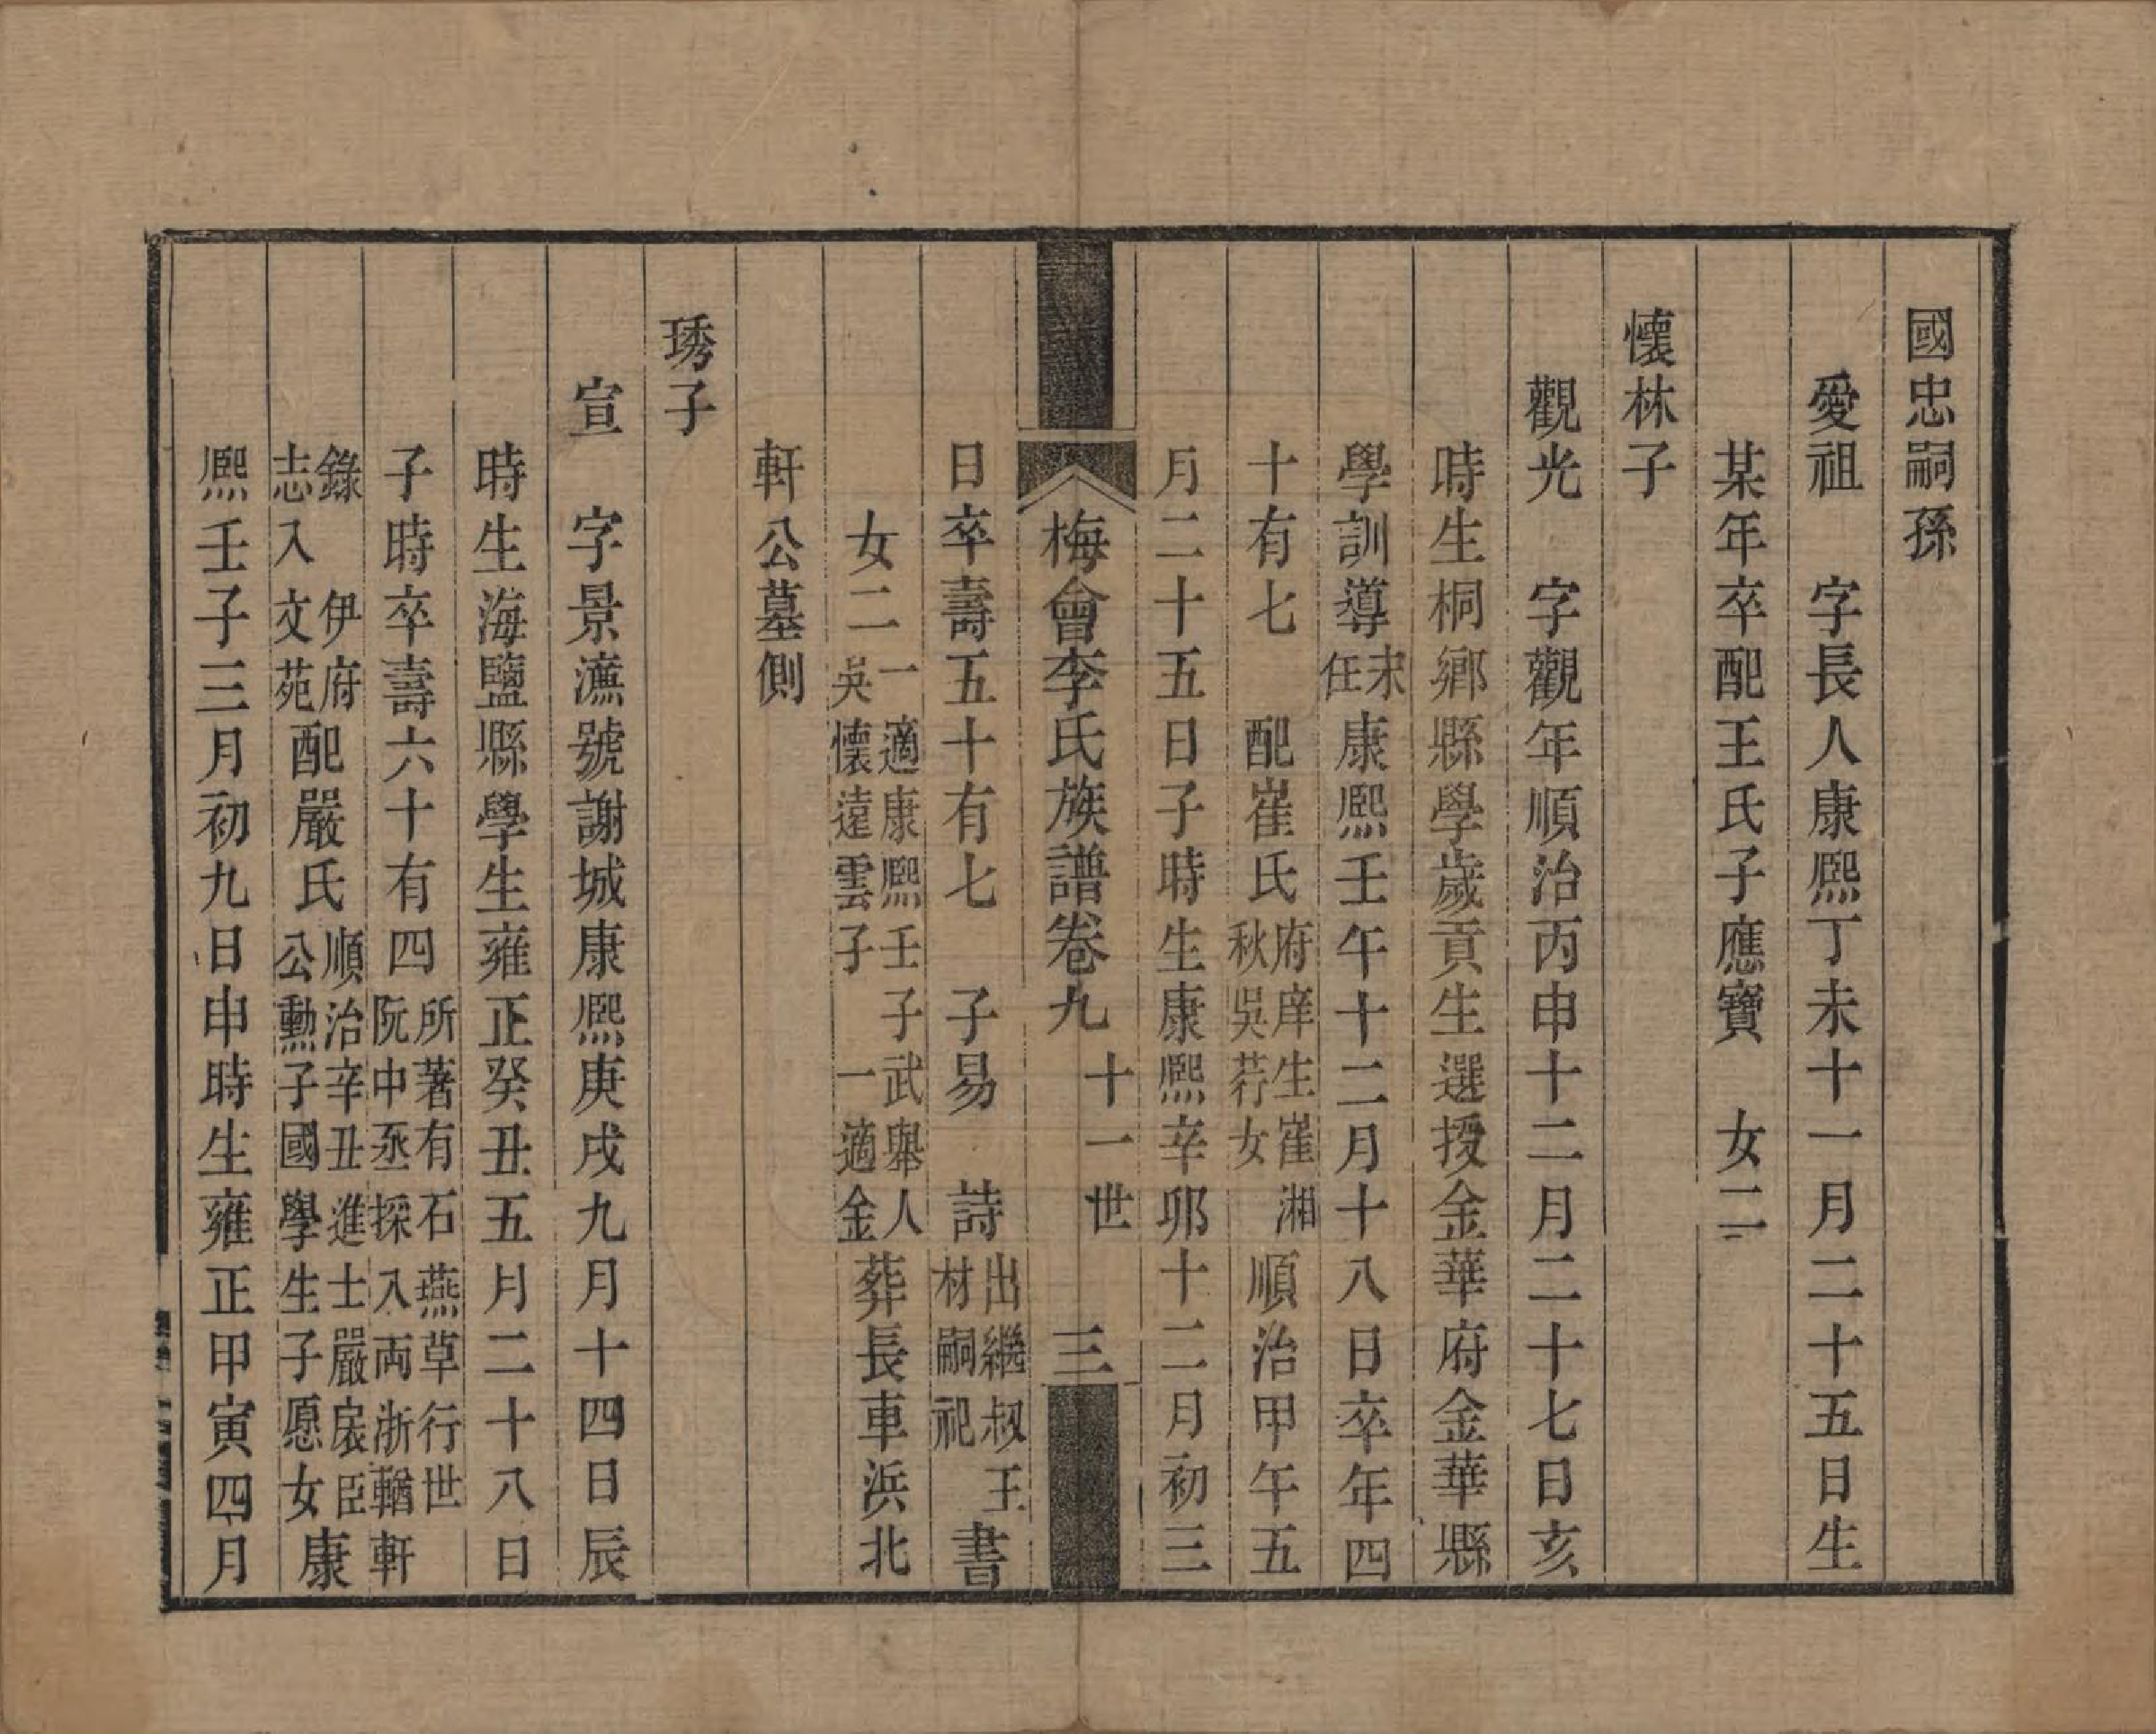 國忠嗣孫
愛祖　字長人康熙丁未十一月二十五日生
某年卒配王氏子應寶　女二
懷林子
觀光　字觀年順治丙申十二月二十七日亥
時生桐鄉縣學歲貢生選授金華府金華縣
學訓導未任康熙壬午十二月十八日卒年四
十有七　配崔氏府庠生崔湘秋吳荇女順治甲午五
月二十五日子時生康熙辛卯十二月初三
梅會李氏族譜卷九　十一世　三
日卒壽五十有七　子易　詩出繼叔王材嗣祀　書
女二一適康熙壬子武舉人吳懷遠雲子　一適金　葬長車浜北
軒公墓側
琇子
宣　字景瀌號謝城康熙庚戌九月十四日辰
時生海鹽縣學生雍正癸丑五月二十八日
子時卒壽六十有四所著有石燕草行世阮中丞採入兩浙輶軒
錄　伊府志入文苑配嚴氏順治辛丑進士嚴扆臣公勳子國學生子愿女康
熙壬子三月初九日申時生雍正甲寅四月